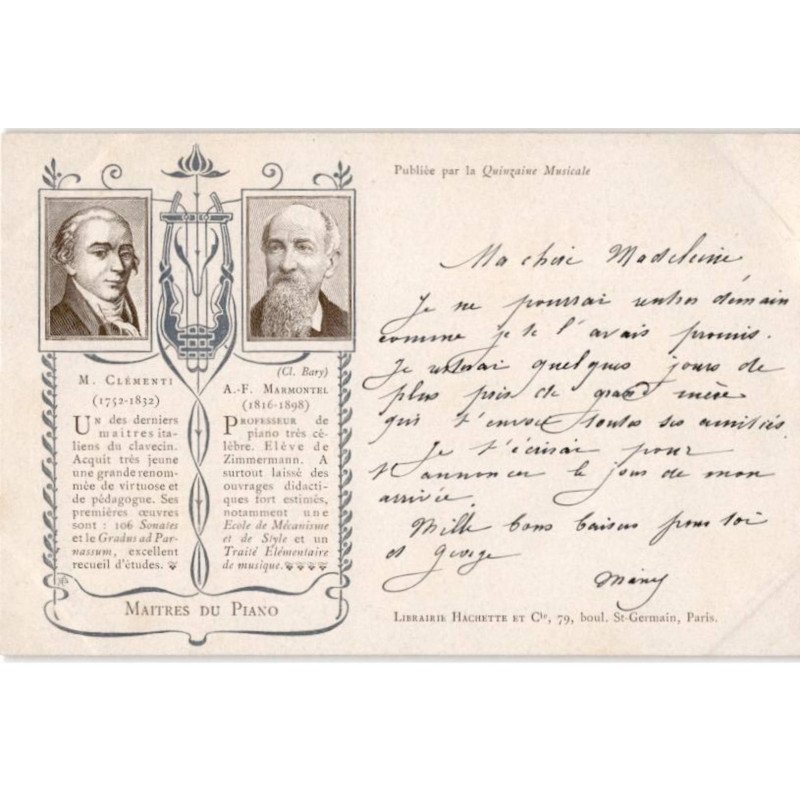 Publiée par la Quinzaine Musicale
(Cl. Bary)
M. CLÉMENTI
(1752-1832)
UN des derniers
maitres ita-
liens du clavecin.
Acquit très jeune
une grande renom-
mée de virtuose et
de pédagogue. Ses
premières œuvres
sont : 106 Sonates
et le Gradus ad Par-
nassum, excellent
recueil d'études.
A.-F. MARMONTEL
(1816-1898)
PROFESSEUR de
piano très cé-
lèbre. Elève de
Zimmermann. A
surtout laissé des
ouvrages didacti-
ques fort estimés,
notamment une
Ecole de Mécanisme
et de Style et un
Traité Elémentaire
de musique.
MAITRES DU PIANO
Ma chère Madeleine
Je ne pourrai rentrer demain
comme je te l'avais promis.
Je resterai quelques jours de
plus près de grand mère
qui t'envoie toutes ses amitiés
Je t'écrirai pour
t'annoncer le jour de mon
arrivée.
Mille bons baisers pour toi
et George
LIBRAIRIE HACHETTE ET Cie, 79, boul. St-Germain, Paris.